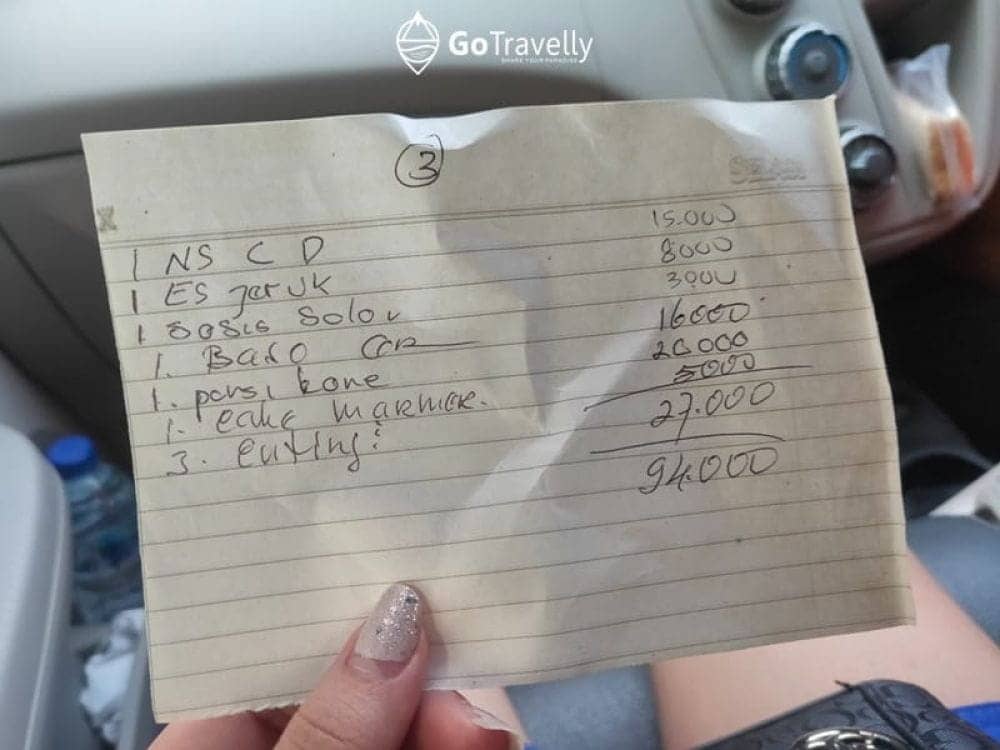 GoTravelly
SHARE YOUR PARADISE
3
1 NS C D 15.000
1 ES jeruk 8000
1 Sosis Solo 3000
1. Baso 16000
1. porsi 20000
1. cake marmer. 5000
3. 27.000
94.000